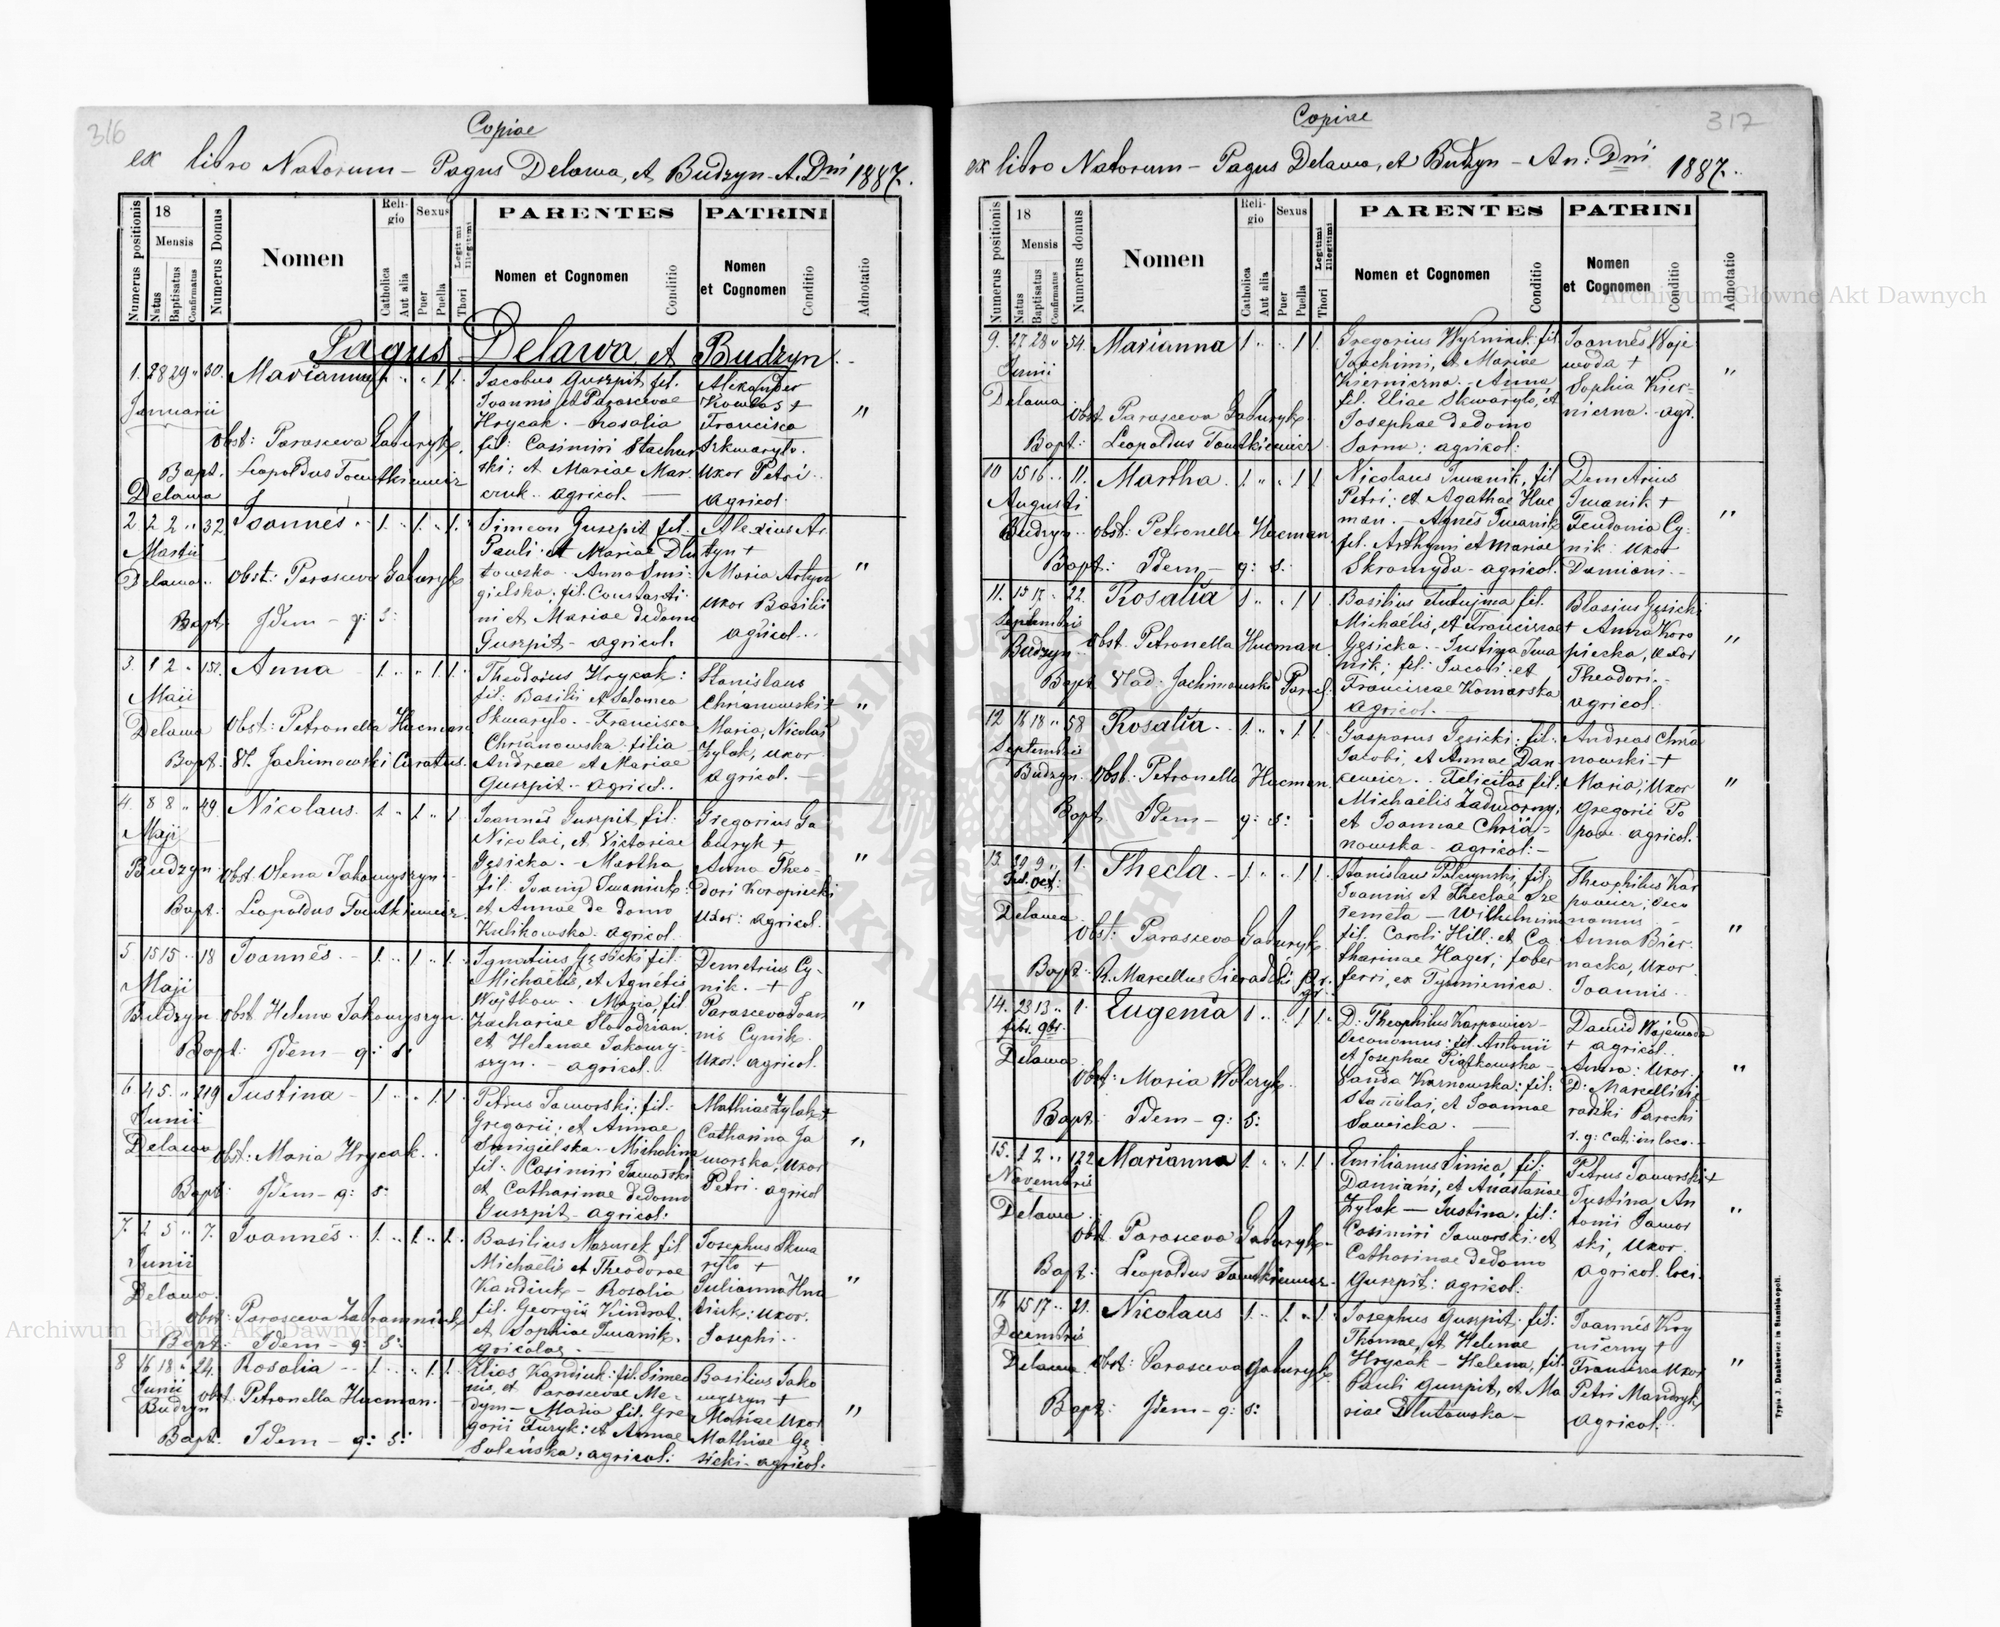 316
Copiae
ex libro Natorum – Pagus Delawa, et Budzyn – A. Dni 1887.
Numerus positionis
18
Mensis
Natus
Baptisatus
Confirmatus
Numerus Domus
Nomen
Religio
Catholica
Aut alia
Sexus
Puer
Puella
Thori
Legitimi
Illegitimi
PARENTES
Nomen et Cognomen
Conditio
PATRINI
Nomen et Cognomen
Conditio
Adnotatio
Pagus Delawa et Budzyn.
1. 28 29 " 30. Marianna 1 " " 1 1.
Januarii
Obst: Parasceva Gaburyk.
Bapt. Leopoldus Toms
Delawa
Jacobus Guszpit, fil.
Joannis et Parascevae
Hrycak. – Rosalia
fil: Casimiri Stachur
ski; et Mariae Mar
cruk. agricol. —
Alexander
+
Francisca
Szkwaryło.
uxor Petri.
agricol.
"
2 2 2 " 32. Joannes. 1. " 1. " 1.
Martii
Delawa. Obst: Parasceva Gaburyk
Bapt: Idem – q: s:
Simeon Guszpit fil.
Pauli et Mariae Dłu
towska. Anna Smi
gielska; fil: Constanti
ni et Mariae dedomo
Guszpit – agricol.
Alexius Ar
tyn +
Maria Artyn
uxor Basilii
agricol..
"
3. 1 2 " 157. Anna 1. " " 1. 1.
Maii
Delawa Obst: Petronella Hucman
Bapt: St. Jachimowski Curatus.
Theodorus Hrycak:
fil: Basilii et Salomea
Skwaryło. Francisca
Chrzanowska filia
Andreae et Mariae
Guszpit – agricol..
Stanislaus
Chrzanowski +
Maria, Nicolai
Zylak, uxor
agricol. –
"
4. 8 8 " 49. Nicolaus. 1. " 1. " 1
Maji
Budzyn Obst: Olena Jakomyszyn
Bapt: Leopoldus
Joannes Guszpit, fil:
Nicolai, et Victoriae
Gęsicka. – Martha
fil:
et Annae de domo
Kulikowska. agricol.
Gregorius Ga
buryk +
Anna Theo
dori Koropiecki
uxor: agricol.
"
5 15 15 " 18 Joannes. 1. " 1. " 1.
Maji
Budzyn Obst: Helena Jakomyszyn.
Bapt: Idem – q: s:
Ignatius Gęsicki fil:
Michaelis, et Agnetis
Wojtkow. Maria, fil
Zachariae Słobodzian
et Helenae Jakomy-
szyn. – agricol.
Demetrius Cy-
nik. +
Parasceva Joan
nis Cynik.
uxor. agricol.
"
6 4 5 " 219 Justina 1 " " 1 1
Junii
Delawa Obst: Maria Hrycak.
Bapt: Idem – q: s:
Petrus Jaworski: fil:
Gregorii, et Annae
Smigielska. – Michalina
fil: Casimiri Jaworski
et Catharinae dedomo
Guszpit – agricol:
Mathias Zylak +
Catharina Ja
worska, uxor
Petri. agricol
"
7. 2 5 " 7. Joannes. 1. " 1. " 1.
Junii
Delawa.
Obst: Parasceva
Bapt: Idem – q: s:
Basilius Mazurek fil
Michaelis et Theodorae
Kandiuk – Rosalia
fil. Georgii Kindrat.
et Sophiae Iwanik.
gricolae. —
Josephus Skwa
ryło +
Julianna Hna
tiuk: uxor.
Josephi..
"
8 16 18 " 24. Rosalia 1. " " 1 1
Junii
Budzyn Obst: Petronella Hucman.
Bapt. Idem – q: s:
Elias Kandiuk: fil: Simeo
nis, et Parascevae Me-
dym – Maria fil: Gre
gorii Furyk: et Annae
Soleńska: agricol:
Basilius Jako
myszyn +
Mariae uxor
Mathiae Gę
sicki. agricol:
"
317
Copiae
ex libro Natorum – Pagus Delawa, et Budzyn – An: Dni 1887..
Numerus positionis
18
Mensis
Natus
Baptisatus
Confirmatus
Numerus domus
Nomen
Religio
Catholica
Aut alia
Sexus
Puer
Puella
Thori
Legitimi
Illegitimi
PARENTES
Nomen et Cognomen
Conditio
PATRINI
Nomen et Cognomen
Conditio
Adnotatio
9. 27 28 " 54. Marianna 1 " " 1 1.
Junii
Delawa
Obst: Parasceva Gaburyk.
Bapt: Leopoldus
Gregorius fil.
Joachimi, et Mariae
Kierniczna. – Anna
fil. Eliae Skwaryło, et
Josephae dedomo
agricol:
Joannes Woje
woda +
Sophia Kier-
niczna. – agr.
"
10 15 16 " 11. Martha. 1 " " 1 1
Augusti
Budzyn Obst: Petronella Hucman.
Bapt: Idem – q: s:
Nicolaus Iwanik, fil
Petri: et Agathae Huc
man. – Agnes Iwanik
fil. et Mariae
Skromyda – agricol.
Demetrius
Iwanik +
Feudonia Cy-
nik uxor
Damiani. –
"
11. 15 17 " 22. Rosalia 1 " " 1 1
Septembris
Budzyn Obst: Petronella Hucman.
Bapt Vlad: Jachimowski
Basilius fil.
Michaelis, et Franciscae
Gęsicka. – Justina Iwa
nik; fil: Jacobi: et
Franciscae Komarska
agricol. —
Blasius Gęsicki
+ Anna Koro
piecka, uxor
Theodori. –
agricol
"
12 16 18 " 58 Rosalia. 1. " " 1 1.
Septembris
Budzyn. Obst: Petronella Hucman.
Bapt. Idem – q: s:
Gasparus Gęsicki: fil.
Jacobi, et Annae Dan
cewicz.. Felicitas fil:
Michaelis Zadworny;
et Joannae Chrza-
nowska – agricol: –
Andreas Chrza
nowski – +
Maria; uxor
Gregorii Po
pow agricol.
"
13. 30 9 " 1. Thecla. 1 " " 1 1.
Oct:
Delawa
Obst: Parasceva Gaburyk
Bapt: R. Marcellus Sieradzki
Stanislaus fil:
Joannis et Theclae Sze
remeta – Wilhelmina
fil. Caroli Hill: et Ca
tharinae Hager; faber
ferri, ex Tysmienica.
Theophilus Kar
powicz, oeco
nomus
Anna Bier-
nacka, uxor
Joannis..
"
14. 23 13 " 1. Eugenia 1 " " 1 1.
8bris. 9bris.
Delawa
Obst: Maria
Bapt: Idem – q: s:
D: Theophilus Karpowicz –
Oeconomus: fil. Antonii
et Josephae Piątkowska –
Vanda Karnowska: fil:
Stanislai, et Joannae
Sawicka. —
David Wojewoda
+ agricol..
Anna: uxor.
D: Marcelli Sie
radzki Parochi
r. g: cat: in loco.
"
15. 1 2 " 122 Marianna 1. " " 1. 1.
Novembris
Delawa.
Obst: Parasceva Gaburyk –
Bapt: Leopoldus
Emilianus Simica, fil:
Damiani, et Anastasiae
Zylak — Justina; fil:
Casimiri Jaworski: et
Catharinae dedomo
Guszpit: agricol:
Petrus Jaworski +
Justina An
tonii Jawor
ski, uxor.
agricol. loci.
"
16 15 17 " 21. Nicolaus 1. " 1. " 1.
Decembris
Delawa Obst: Parasceva Gaburyk.
Bapt: Idem – q: s:
Josephus Guszpit: fil:
Thomae, et Helenae
Hrycak – Helena, fil.
Pauli Guszpit, et Ma
riae Dłutowska –
Joannes Kry
niczny +
Francisca uxor
Petri Mandryk
agricol.
"
Typis J. Dankiewicz in Stanislaopoli.
Archiwum Główne Akt Dawnych
Archiwum Główne Akt Dawnych
ARCHIWUM GŁÓWNE AKT DAWNYCH